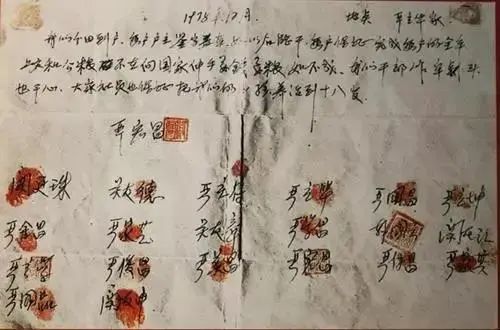 1978年12月. 地点 严立华家
我们分田到户,每户户主签字盖章,如以后能干,每户保证完成每户的全年
上交和公粮不在向国家伸手要钱要粮,如不成,我们干部作牢刹头
也干心,大家社员也保证把我们的小孩养活到十八岁.
严宏昌
关廷珠 关友德 严立符 严立华 严国昌 严立坤
严金昌 严家芝 关友章 严学昌 韩国云 关友江
严立学 严俊昌 严美昌 严付昌
严国品 关友申